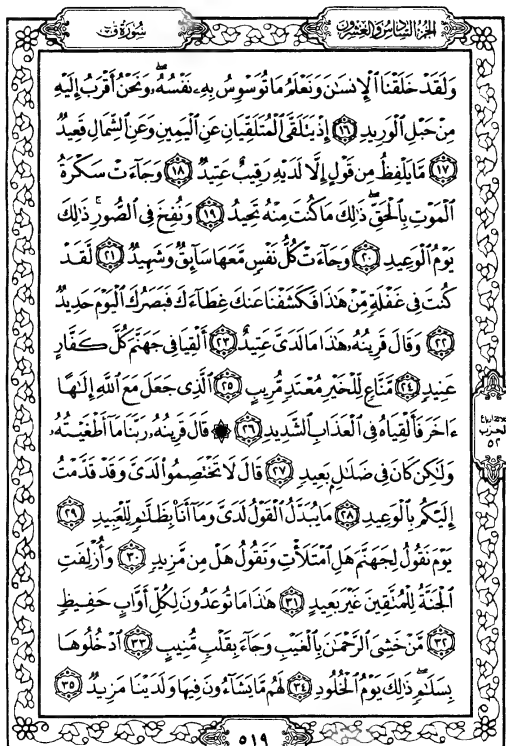 سُورَةُ قٓ
الجزء السادس والعشرون
وَلَقَدْ خَلَقْنَا ٱلْإِنسَٰنَ وَنَعْلَمُ مَا تُوَسْوِسُ بِهِۦ نَفْسُهُۥ ۖ وَنَحْنُ أَقْرَبُ إِلَيْهِ
مِنْ حَبْلِ ٱلْوَرِيدِ ١٦ إِذْ يَتَلَقَّى ٱلْمُتَلَقِّيَانِ عَنِ ٱلْيَمِينِ وَعَنِ ٱلشِّمَالِ قَعِيدٌ
١٧ مَّا يَلْفِظُ مِن قَوْلٍ إِلَّا لَدَيْهِ رَقِيبٌ عَتِيدٌ ١٨ وَجَآءَتْ سَكْرَةُ
ٱلْمَوْتِ بِٱلْحَقِّ ۖ ذَٰلِكَ مَا كُنتَ مِنْهُ تَحِيدُ ١٩ وَنُفِخَ فِى ٱلصُّورِ ۚ ذَٰلِكَ
يَوْمُ ٱلْوَعِيدِ ٢٠ وَجَآءَتْ كُلُّ نَفْسٍ مَّعَهَا سَآئِقٌ وَشَهِيدٌ ٢١ لَّقَدْ
كُنتَ فِى غَفْلَةٍ مِّنْ هَٰذَا فَكَشَفْنَا عَنكَ غِطَآءَكَ فَبَصَرُكَ ٱلْيَوْمَ حَدِيدٌ
٢٢ وَقَالَ قَرِينُهُۥ هَٰذَا مَا لَدَىَّ عَتِيدٌ ٢٣ أَلْقِيَا فِى جَهَنَّمَ كُلَّ كَفَّارٍ
عَنِيدٍ ٢٤ مَّنَّاعٍ لِّلْخَيْرِ مُعْتَدٍ مُّرِيبٍ ٢٥ ٱلَّذِى جَعَلَ مَعَ ٱللَّهِ إِلَٰهًا
ءَاخَرَ فَأَلْقِيَاهُ فِى ٱلْعَذَابِ ٱلشَّدِيدِ ٢٦ ۞ قَالَ قَرِينُهُۥ رَبَّنَا مَآ أَطْغَيْتُهُۥ
وَلَٰكِن كَانَ فِى ضَلَٰلٍۭ بَعِيدٍ ٢٧ قَالَ لَا تَخْتَصِمُوا۟ لَدَىَّ وَقَدْ قَدَّمْتُ
إِلَيْكُم بِٱلْوَعِيدِ ٢٨ مَا يُبَدَّلُ ٱلْقَوْلُ لَدَىَّ وَمَآ أَنَا۠ بِظَلَّٰمٍ لِّلْعَبِيدِ ٢٩
يَوْمَ نَقُولُ لِجَهَنَّمَ هَلِ ٱمْتَلَأْتِ وَتَقُولُ هَلْ مِن مَّزِيدٍ ٣٠ وَأُزْلِفَتِ
ٱلْجَنَّةُ لِلْمُتَّقِينَ غَيْرَ بَعِيدٍ ٣١ هَٰذَا مَا تُوعَدُونَ لِكُلِّ أَوَّابٍ حَفِيظٍ
٣٢ مَّنْ خَشِىَ ٱلرَّحْمَٰنَ بِٱلْغَيْبِ وَجَآءَ بِقَلْبٍ مُّنِيبٍ ٣٣ ٱدْخُلُوهَا
بِسَلَٰمٍ ۖ ذَٰلِكَ يَوْمُ ٱلْخُلُودِ ٣٤ لَهُم مَّا يَشَآءُونَ فِيهَا وَلَدَيْنَا مَزِيدٌ ٣٥
الحزب
٥٢
٥١٩